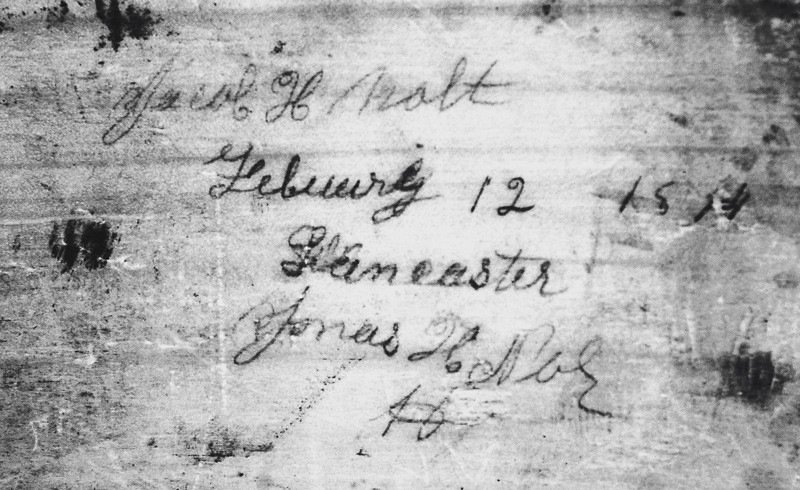 Jacob H Nolt
Febuwry 12 1874
Lancaster
Jonas H Nol
t